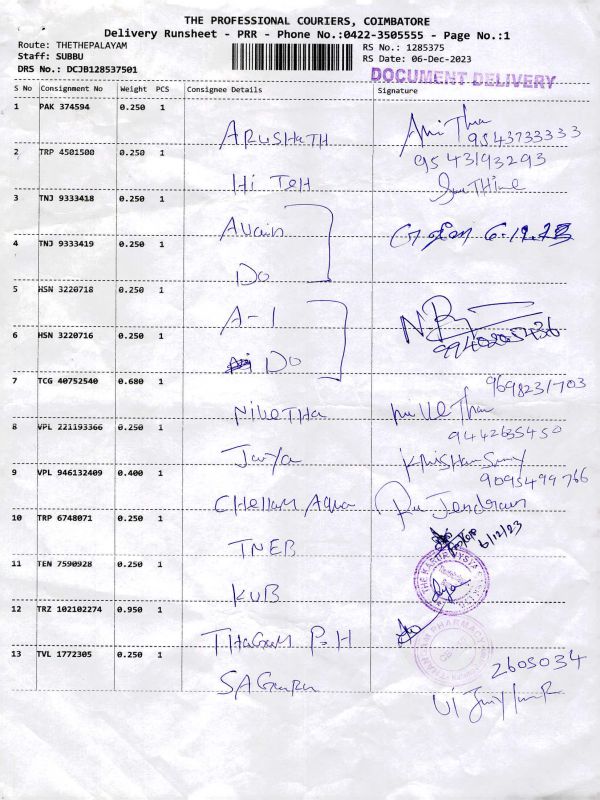 THE PROFESSIONAL COURIERS, COIMBATORE
Delivery Runsheet - PRR - Phone No.:0422-3505555 - Page No.:1
Route: THETHEPALAYAM
RS No.: 1285375
Staff: SUBBU
RS Date: 06-Dec-2023
DRS No.: DCJB128537501
DOCUMENT DELIVERY
S No Consignment No Weight PCS Consignee Details Signature
1 PAK 374594 0.250 1
ARUSHATH 9543733333
2 TRP 4501500 0.250 1
9543193293
Hi TEH
3 TNJ 9333418 0.250 1
4 TNJ 9333419 0.250 1
Do
5 HSN 3220718 0.250 1
A-1
6 HSN 3220716 0.250 1
Do 9940205436
7 TCG 40752540 0.680 1
9698231703
NiveTHa
8 VPL 221193366 0.250 1
9442635450
Jaya
9 VPL 946132409 0.400 1
9095499766
CHellam Aqua
10 TRP 6748071 0.250 1
TNEB
6/12/23
11 TEN 7590928 0.250 1
KVB
12 TRZ 102102274 0.950 1
P.H
13 TVL 1772305 0.250 1
2605034